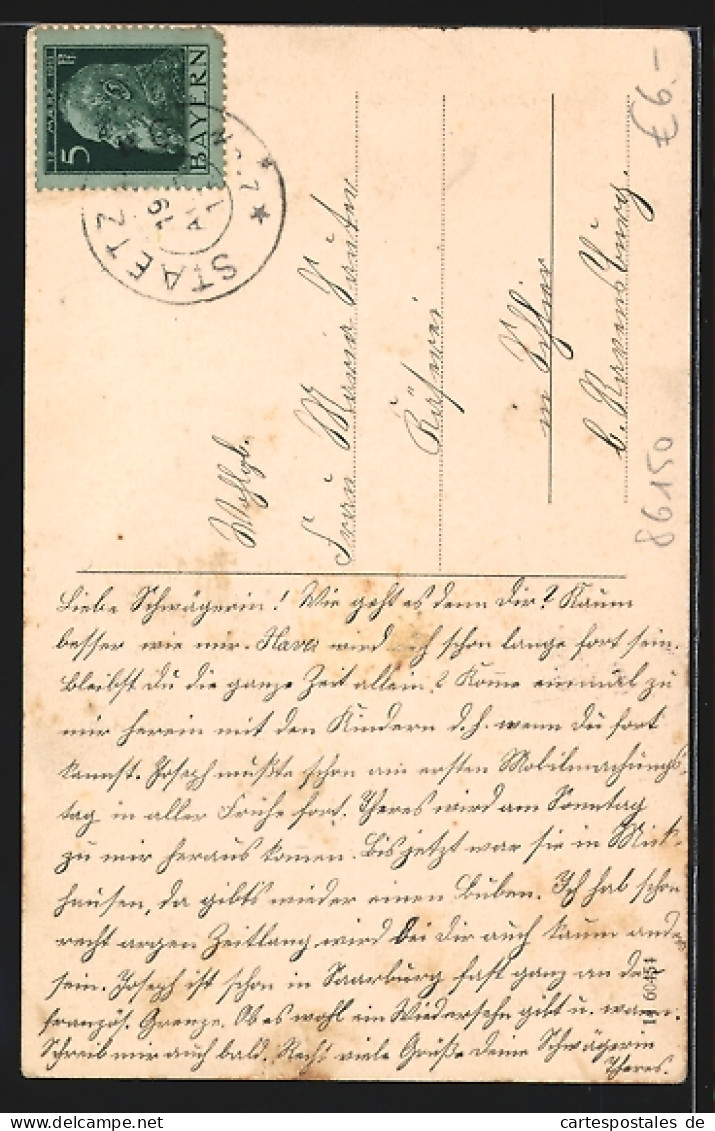 5
BAYERN
STAETZ
19
£6.-
86150
Wohlgb.
Frau Maria Sauter
Käserei
in Schlier
b. Ravensburg.
Liebe Schwägerin! Wie geht es denn Dir? Kaum
besser wie mir. wird schon lange fort sein.
Bleibst du die ganze Zeit allein? Komme einmal zu
mir herein mit den Kindern d.h. wenn du fort
kannst. Joseph mußte schon am ersten Mobilmachungs-
tag in aller Frühe fort. Theres wird am Sonntag
zu mir heraus komen. Bis jetzt war sie in Mick-
hausen, da gibts wieder einen Buben. Ich hab schon
recht argen Zeitlang wird bei dir auch kaum anders
sein. Joseph ist schon in Saarburg fast ganz an der
französ. Grenze. Ob es wohl ein Wiedersehn gibt u. wann.
Schreib mir auch bald. Recht viele Grüße deine Schwägerin
Theres.
cartespostales de